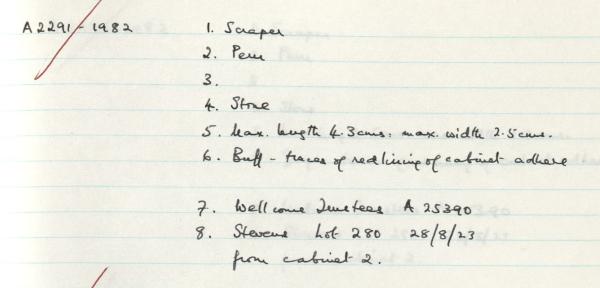 A2291-1982
1. Scraper
2. Peru
3.
4. Stone
5. Max. length 4.3cms. max. width 2.5cms.
6. Buff - traces of red lining of cabinet adhere
7. Wellcome Trustees A 25390
8. Stevens Lot 280 28/8/23
from cabinet 2.